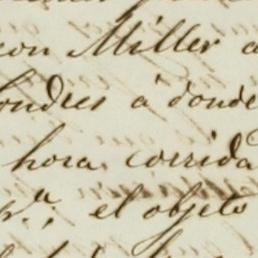 con Miller a
ondres á donde
hora corrida
p.ª; el objeto